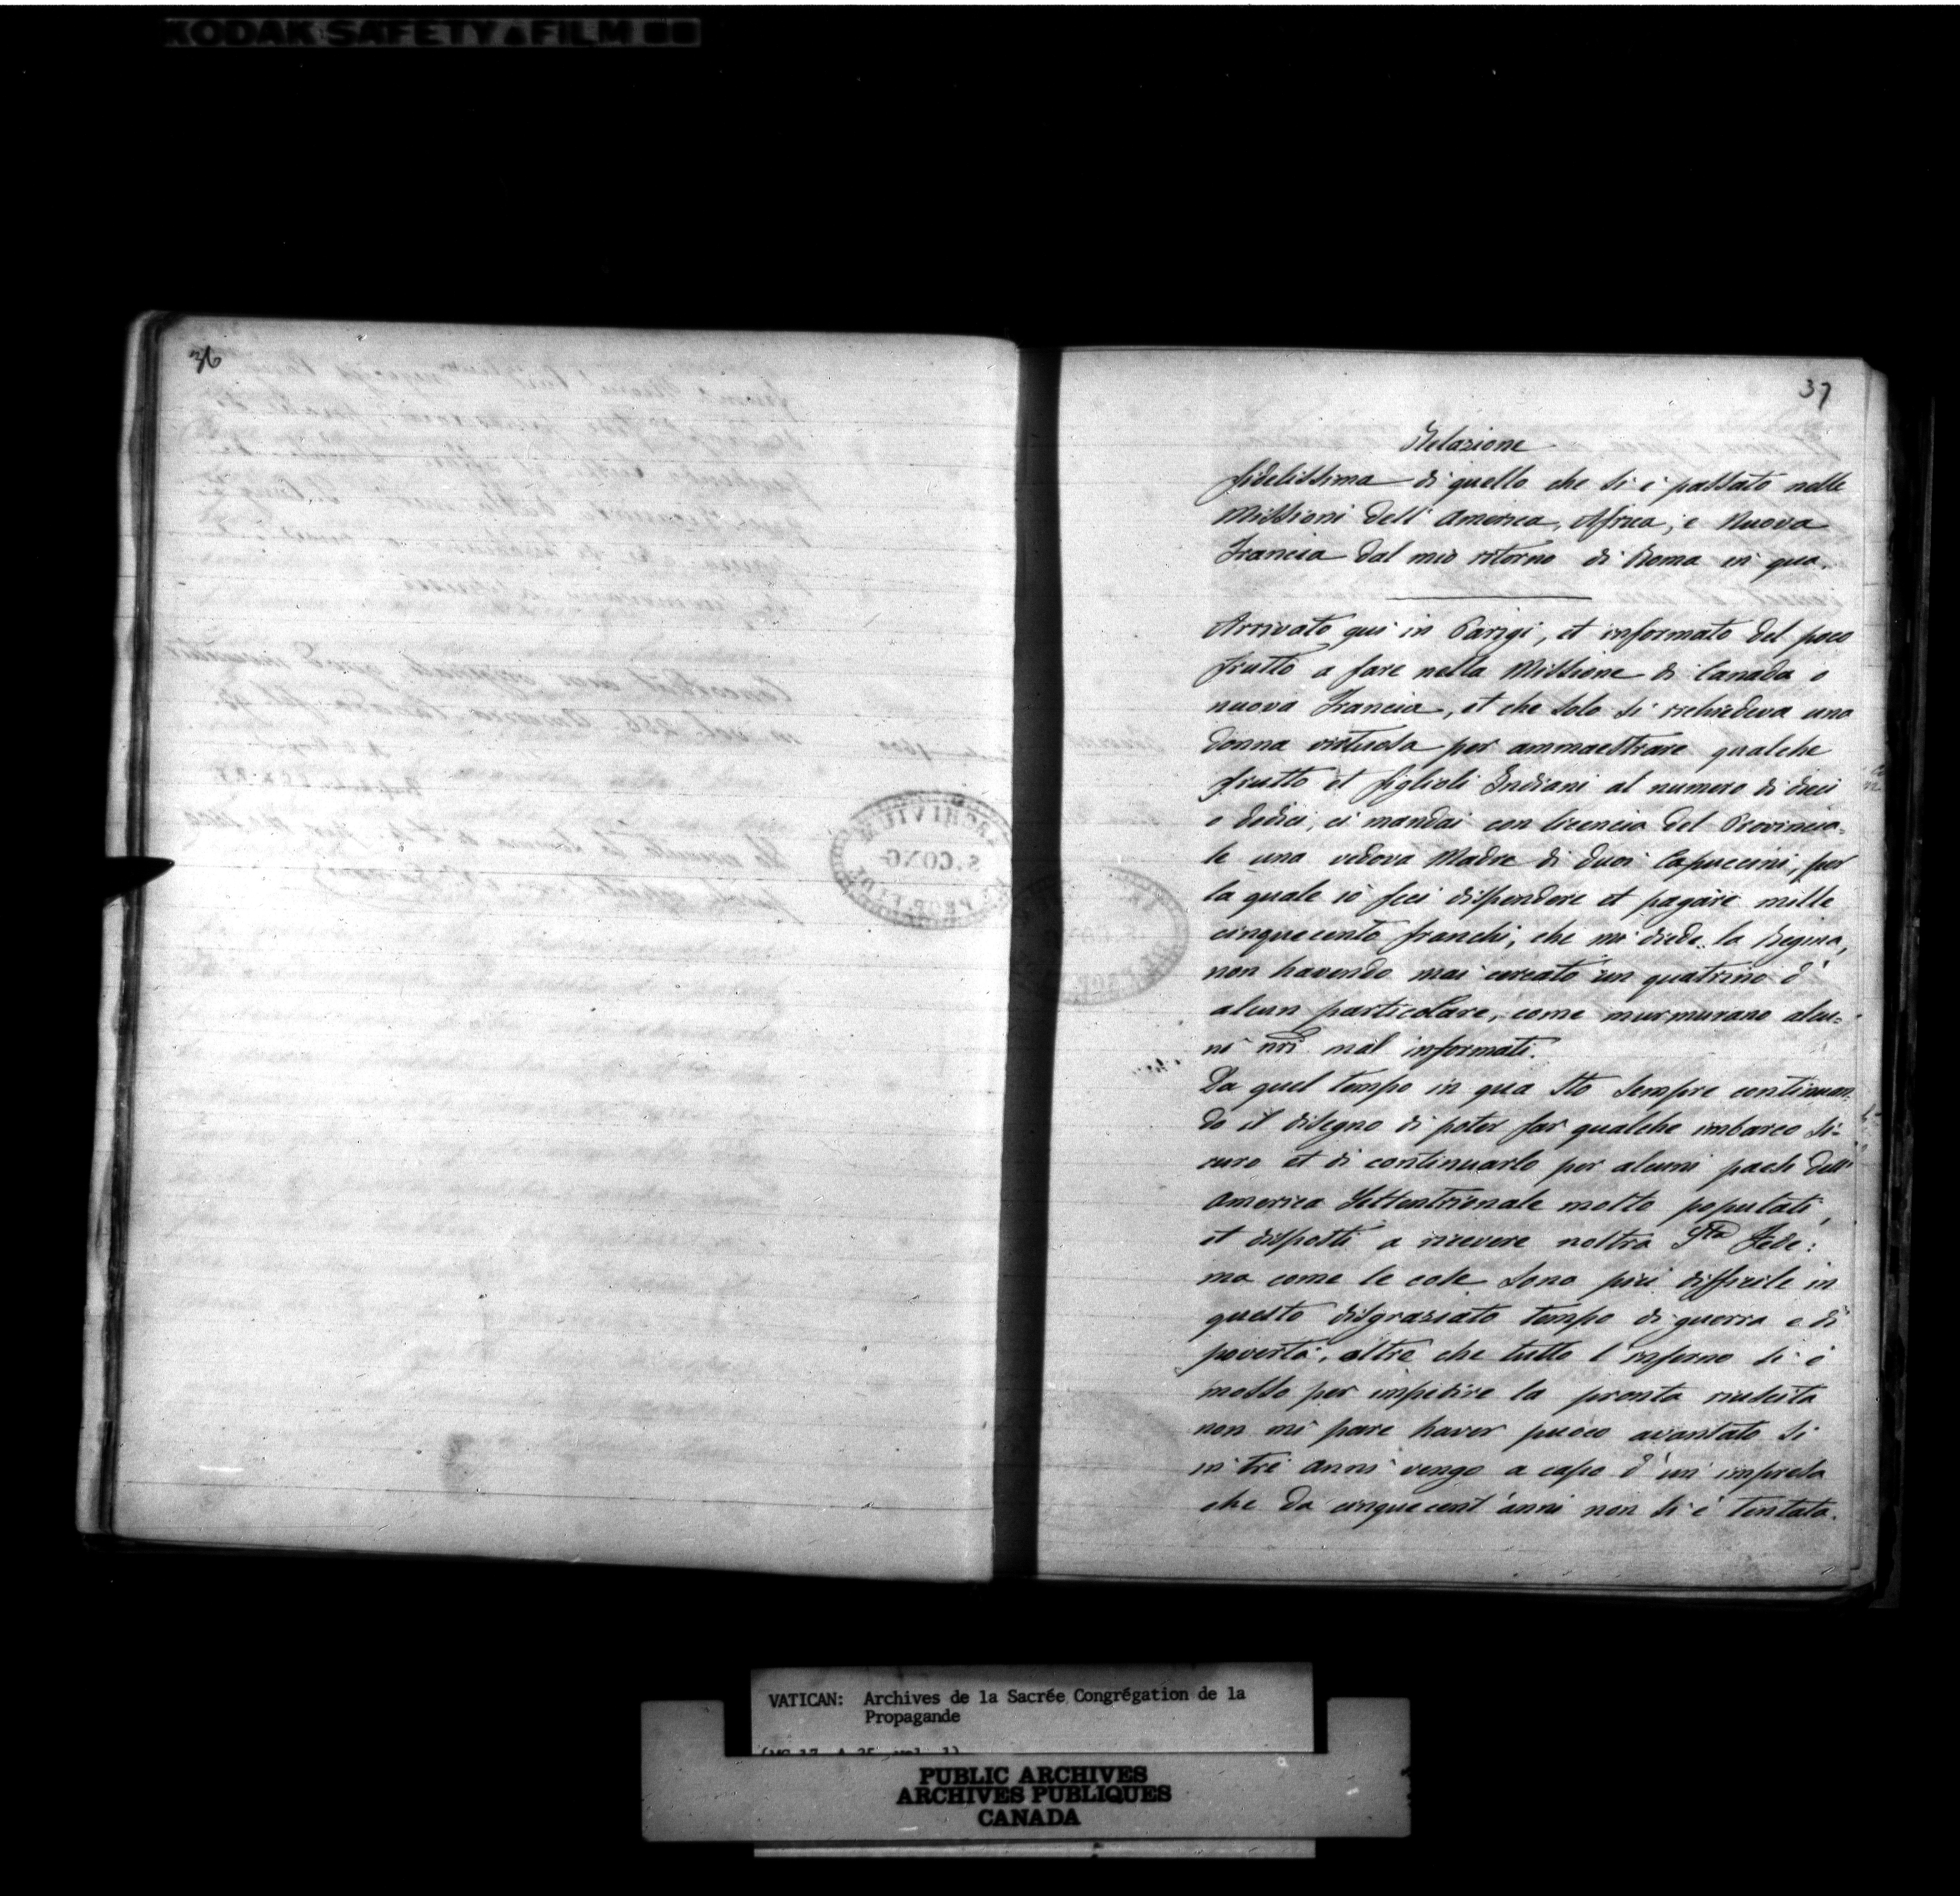 KODAK SAFETY FILM
36
37
Relazione
fidelissima di quello che si è passato nelle
Missioni dell' America, Africa, e Nuova
Francia dal mio ritorno di Roma in qua.
Arrivato qui in Parigi, et informato del poco
frutto a fare nella Missione di Canada o
nuova Francia, et che solo si richiedeva una
donna virtuosa per ammaestrare qualche
frutto et figlioli Indiani al numero di dieci
o dodici, ci mandai con licencia del Provincia=
le una vedova Madre di duoi Capuccini, per
la quale io feci dispendere et pagare mille
cinquecento franchi, che mi diede la Regina,
non havendo mai cercato un quatrino d'
alcun particolare, come murmurano alcu=
ni nri mal informati.
Da quel tempo in qua sto sempre continuan=
do il disegno di poter far qualche imbarco si=
curo et di continuarlo per alcuni paesi dell'
America Settentrionale molto populati,
et disposti a ricevere nostra Sta Fede:
ma come le cose sono più difficile in
questo disgraziato tempo di guerra e di
povertà, oltre che tutto l'inferno si è
mosso per impedire la pronta riuscita
non mi pare haver puoco avantato si
in tre anni vengo a capo d'un impresa
che da cinquecent'anni non si è tentata.
ARCHIVIUM
S. CONG.
VATICAN: Archives de la Sacrée Congrégation de la
Propagande
(MG 17, A 25, vol. 1)
PUBLIC ARCHIVES
ARCHIVES PUBLIQUES
CANADA